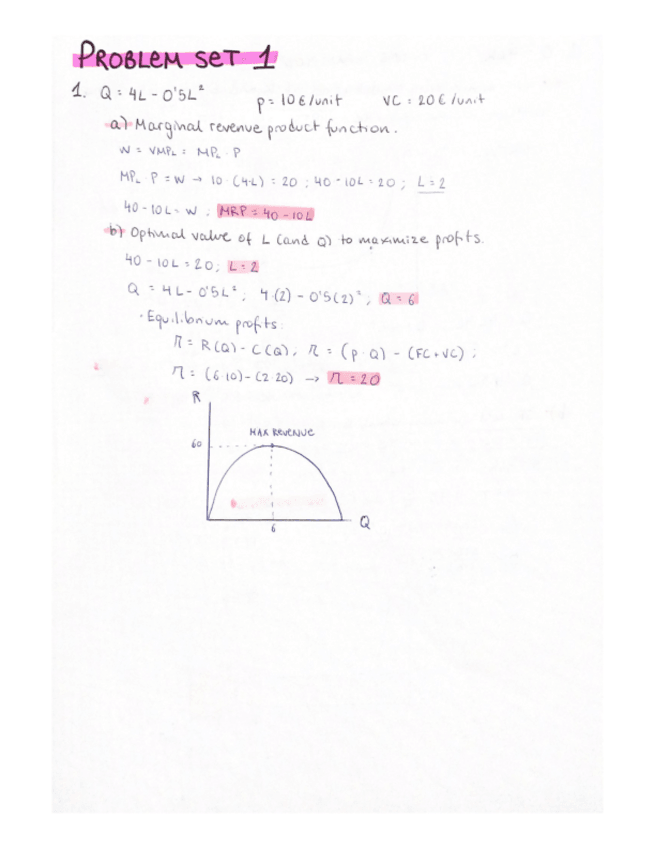 PROBLEM SET 1
1. Q = 4L - 0'5L² p = 10€/unit VC = 20€/unit
a) Marginal revenue product function.
W = VMPL = MPL · P
MPL · P = W → 10 · (4-L) = 20 ; 40 - 10L = 20 ; L = 2
40 - 10L = W ; MRP = 40 - 10L
b) Optimal value of L (and Q) to maximize profits.
40 - 10L = 20 ; L = 2
Q = 4L - 0'5L² ; 4·(2) - 0'5(2)² ; Q = 6
· Equilibrium profits:
π = R(Q) - C(Q), π = (p · Q) - (FC + VC) ;
π = (6·10) - (2·20) → π = 20
R
MAX REVENUE
60
6
Q